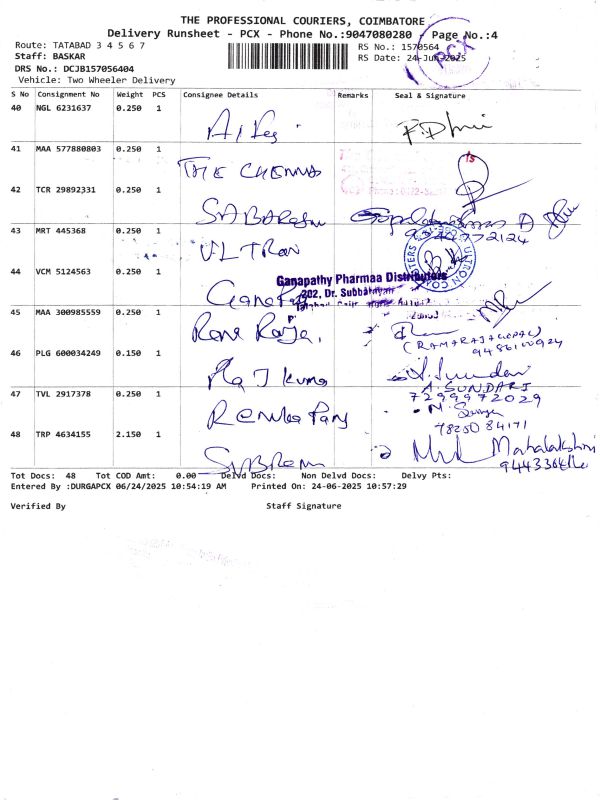 THE PROFESSIONAL COURIERS, COIMBATORE
Delivery Runsheet - PCX - Phone No.:9047080280 / Page No.:4
Route: TATABAD 3 4 5 6 7
RS No.: 1570564
Staff: BASKAR
RS Date: 24-Jun-2025
PCX
DRS No.: DCJB157056404
Vehicle: Two Wheeler Delivery
S No Consignment No Weight PCS Consignee Details Remarks Seal & Signature
40 NGL 6231637 0.250 1
41 MAA 577880803 0.250 1 THE CHENNA
42 TCR 29892331 0.250 1
43 MRT 445368 0.250 1 ULTRON
ULTRON COMPUTERS
44 VCM 5124563 0.250 1
Ganapathy Pharmaa Distributors
202, Dr. Subbarayan
45 MAA 300985559 0.250 1
(RAMARAJAGOPAL)
46 PLG 600034249 0.150 1 Raj Kumar
A. SUNDARI
7299972029
47 TVL 2917378 0.250 1
48 TRP 4634155 2.150 1 Mahalakshmi
Tot Docs: 48 Tot COD Amt: 0.00 Delvd Docs: Non Delvd Docs: Delvy Pts:
Entered By :DURGAPCX 06/24/2025 10:54:19 AM Printed On: 24-06-2025 10:57:29
Verified By Staff Signature